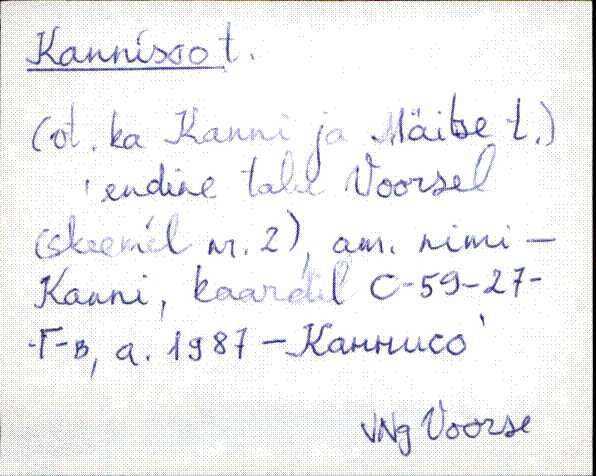 Kannisoo t.
(vt. ka Kanni ja Mäitse t.)
'endine talu Voorsel
(skeemil nr. 2), am. nimi -
Kanni, kaardil C-59-27-
-Г-в, a. 1987 - Каннисо'
VNg Voorse